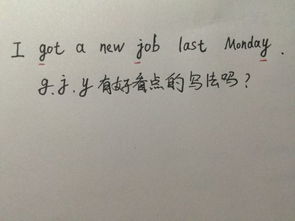 I got a new job last Monday.
g.j.y有好看点的写法吗?